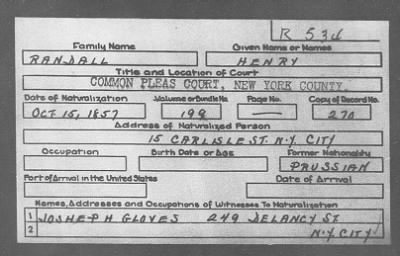 R 534
Family Name Given Name or Names
RANDALL HENRY
Title and Location of Court
COMMON PLEAS COURT, NEW YORK COUNTY.
Date of Naturalization Volume or Bundle No. Page No. Copy of Record No.
OCT 15, 1857 198 — 270
Address of Naturalized Person
15 CARLISLE ST. N.Y. CITY
Occupation Birth Date or Age Former Nationality
PRUSSIAN
Port of Arrival in the United States Date of Arrival
Names, Addresses and Occupations of Witnesses To Naturalization
1 JOSHEPH GLOVES 249 DELANCY ST
2 N.Y. CITY